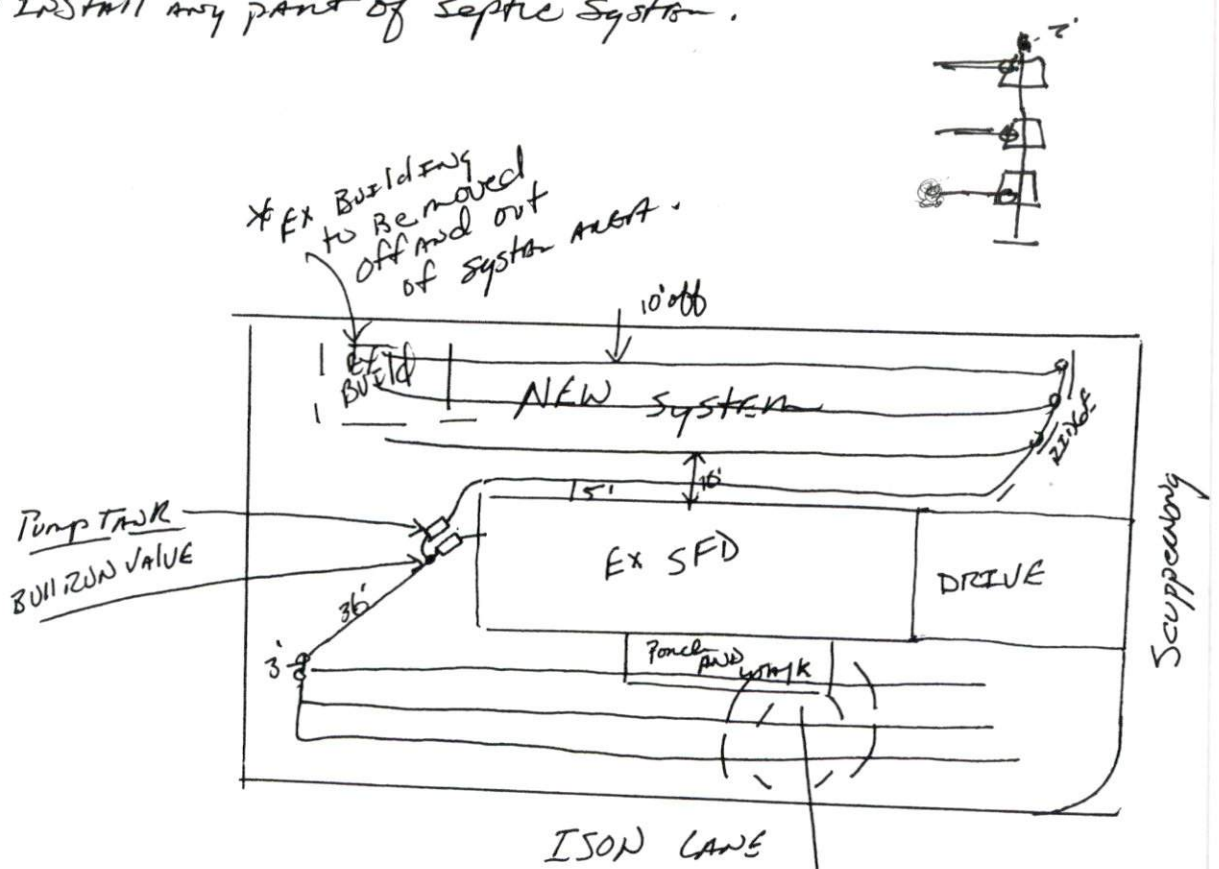 INSTALL ANY PART OF SEPTIC SYSTEM.
* EX BUILDING
to Be moved
off AND out
of system AREA.
10' off
EX
BUILD
NEW SYSTEM
RIDGE
15'
10'
PUMP TANK
BULL RUN VALVE
EX SFD
DRIVE
Scuppernong
36'
3'
Porch
AND WALK
ISON LANE